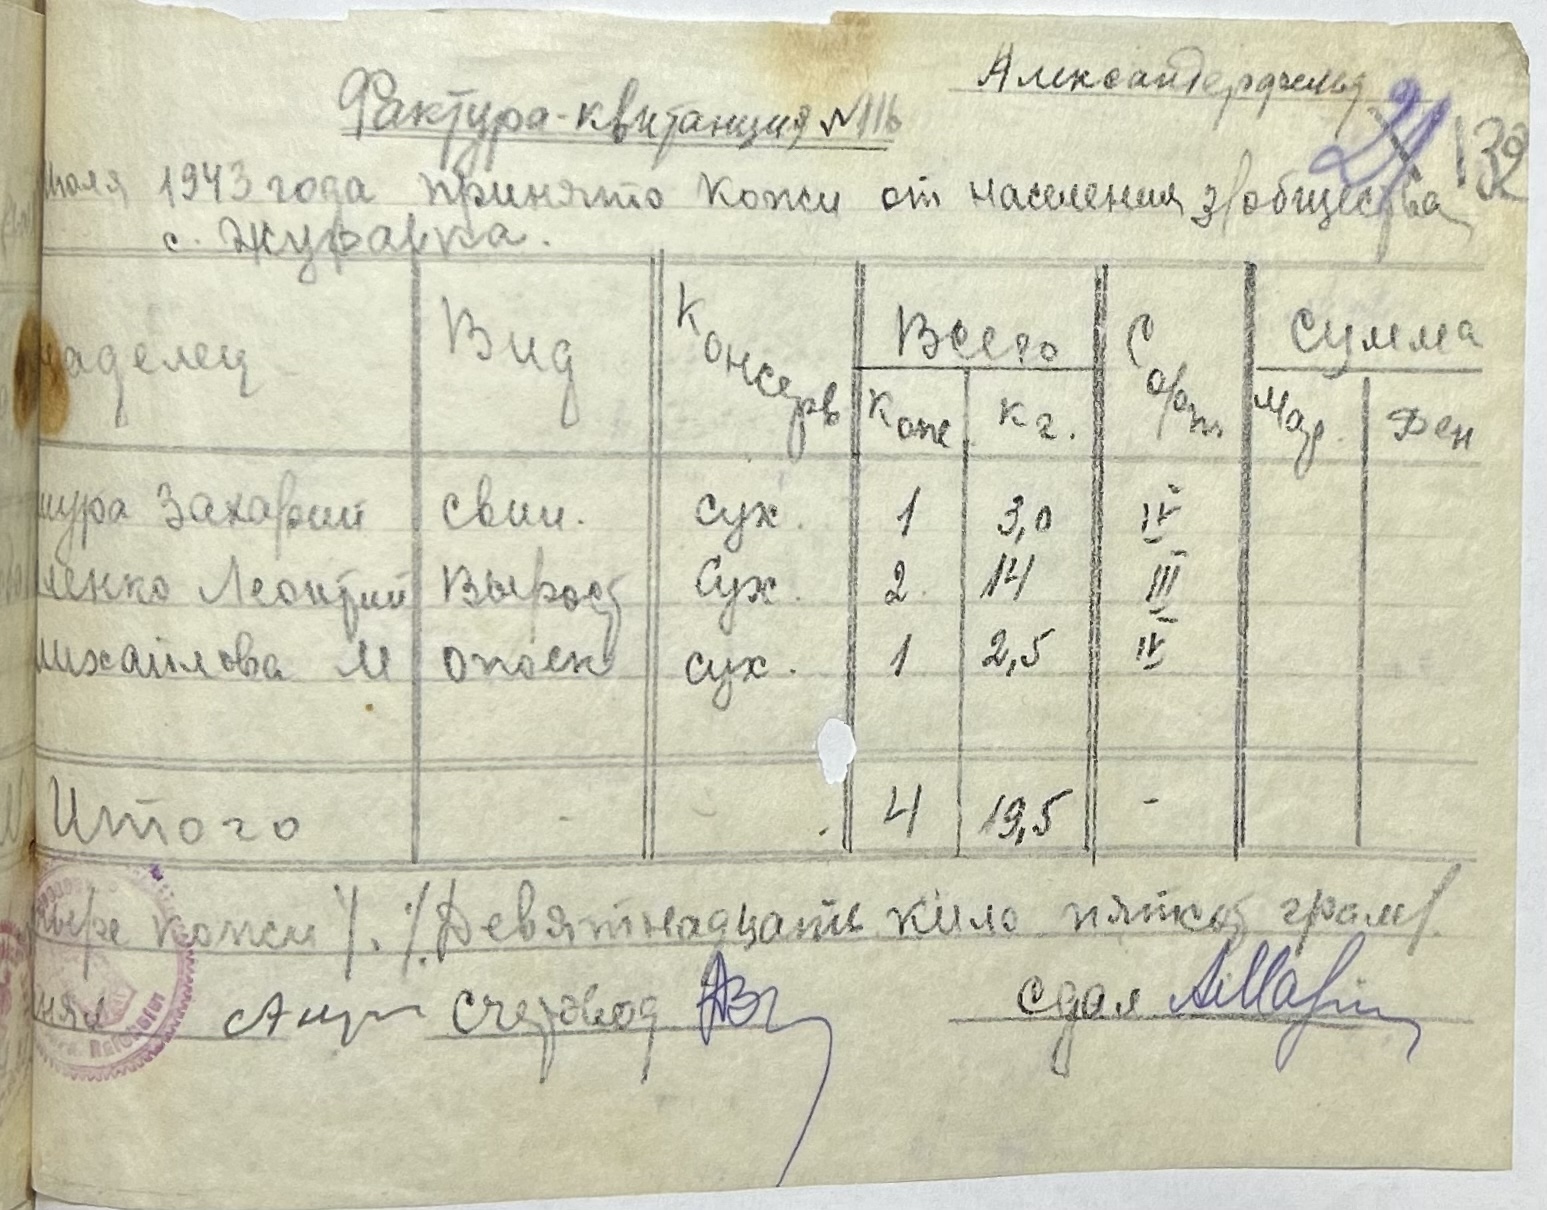 Александерфельд
Фактура-квитанция № 116
21 132
июля 1943 года принято кожи от населения з/общества
с. Журавка.
наделец Вид Консерв Всего Сорт Сумма
Кож. кг. Мар. Фен
мура Захарий свин. сух. 1 3,0 IV
ленко Леонтий Вырост сух. 2. 14 III
михайлова М опоек сух. 1 2,5 IV
Итого - - . 4 19,5 -
кожи /./. Девятнадцать кило пятьсот грам/.
нял Счетовод сдал